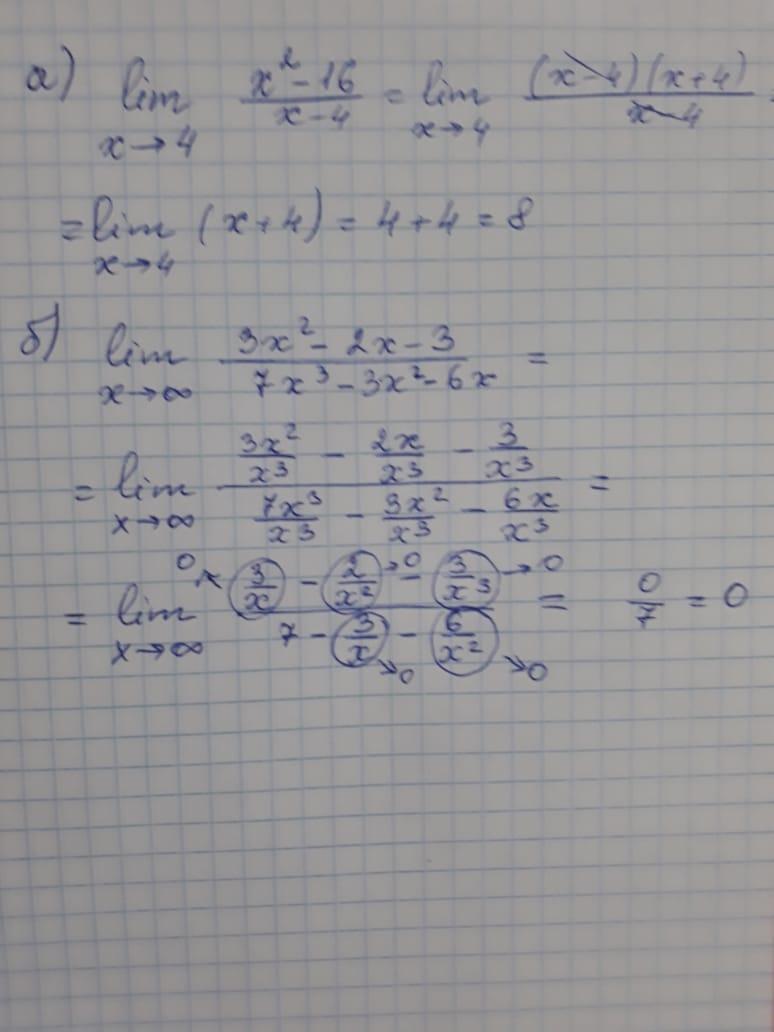 а) lim x→4 (x² - 16)/(x - 4) = lim x→4 ((x-4)(x+4))/(x-4) =
= lim x→4 (x+4) = 4+4 = 8
б) lim x→∞ (3x² - 2x - 3)/(7x³ - 3x² - 6x) =
= lim x→∞ (3x²/x³ - 2x/x³ - 3/x³)/(7x³/x³ - 3x²/x³ - 6x/x³) =
= lim x→∞ (3/x →0 - 2/x² →0 - 3/x³ →0)/(7 - 3/x →0 - 6/x² →0) = 0/7 = 0